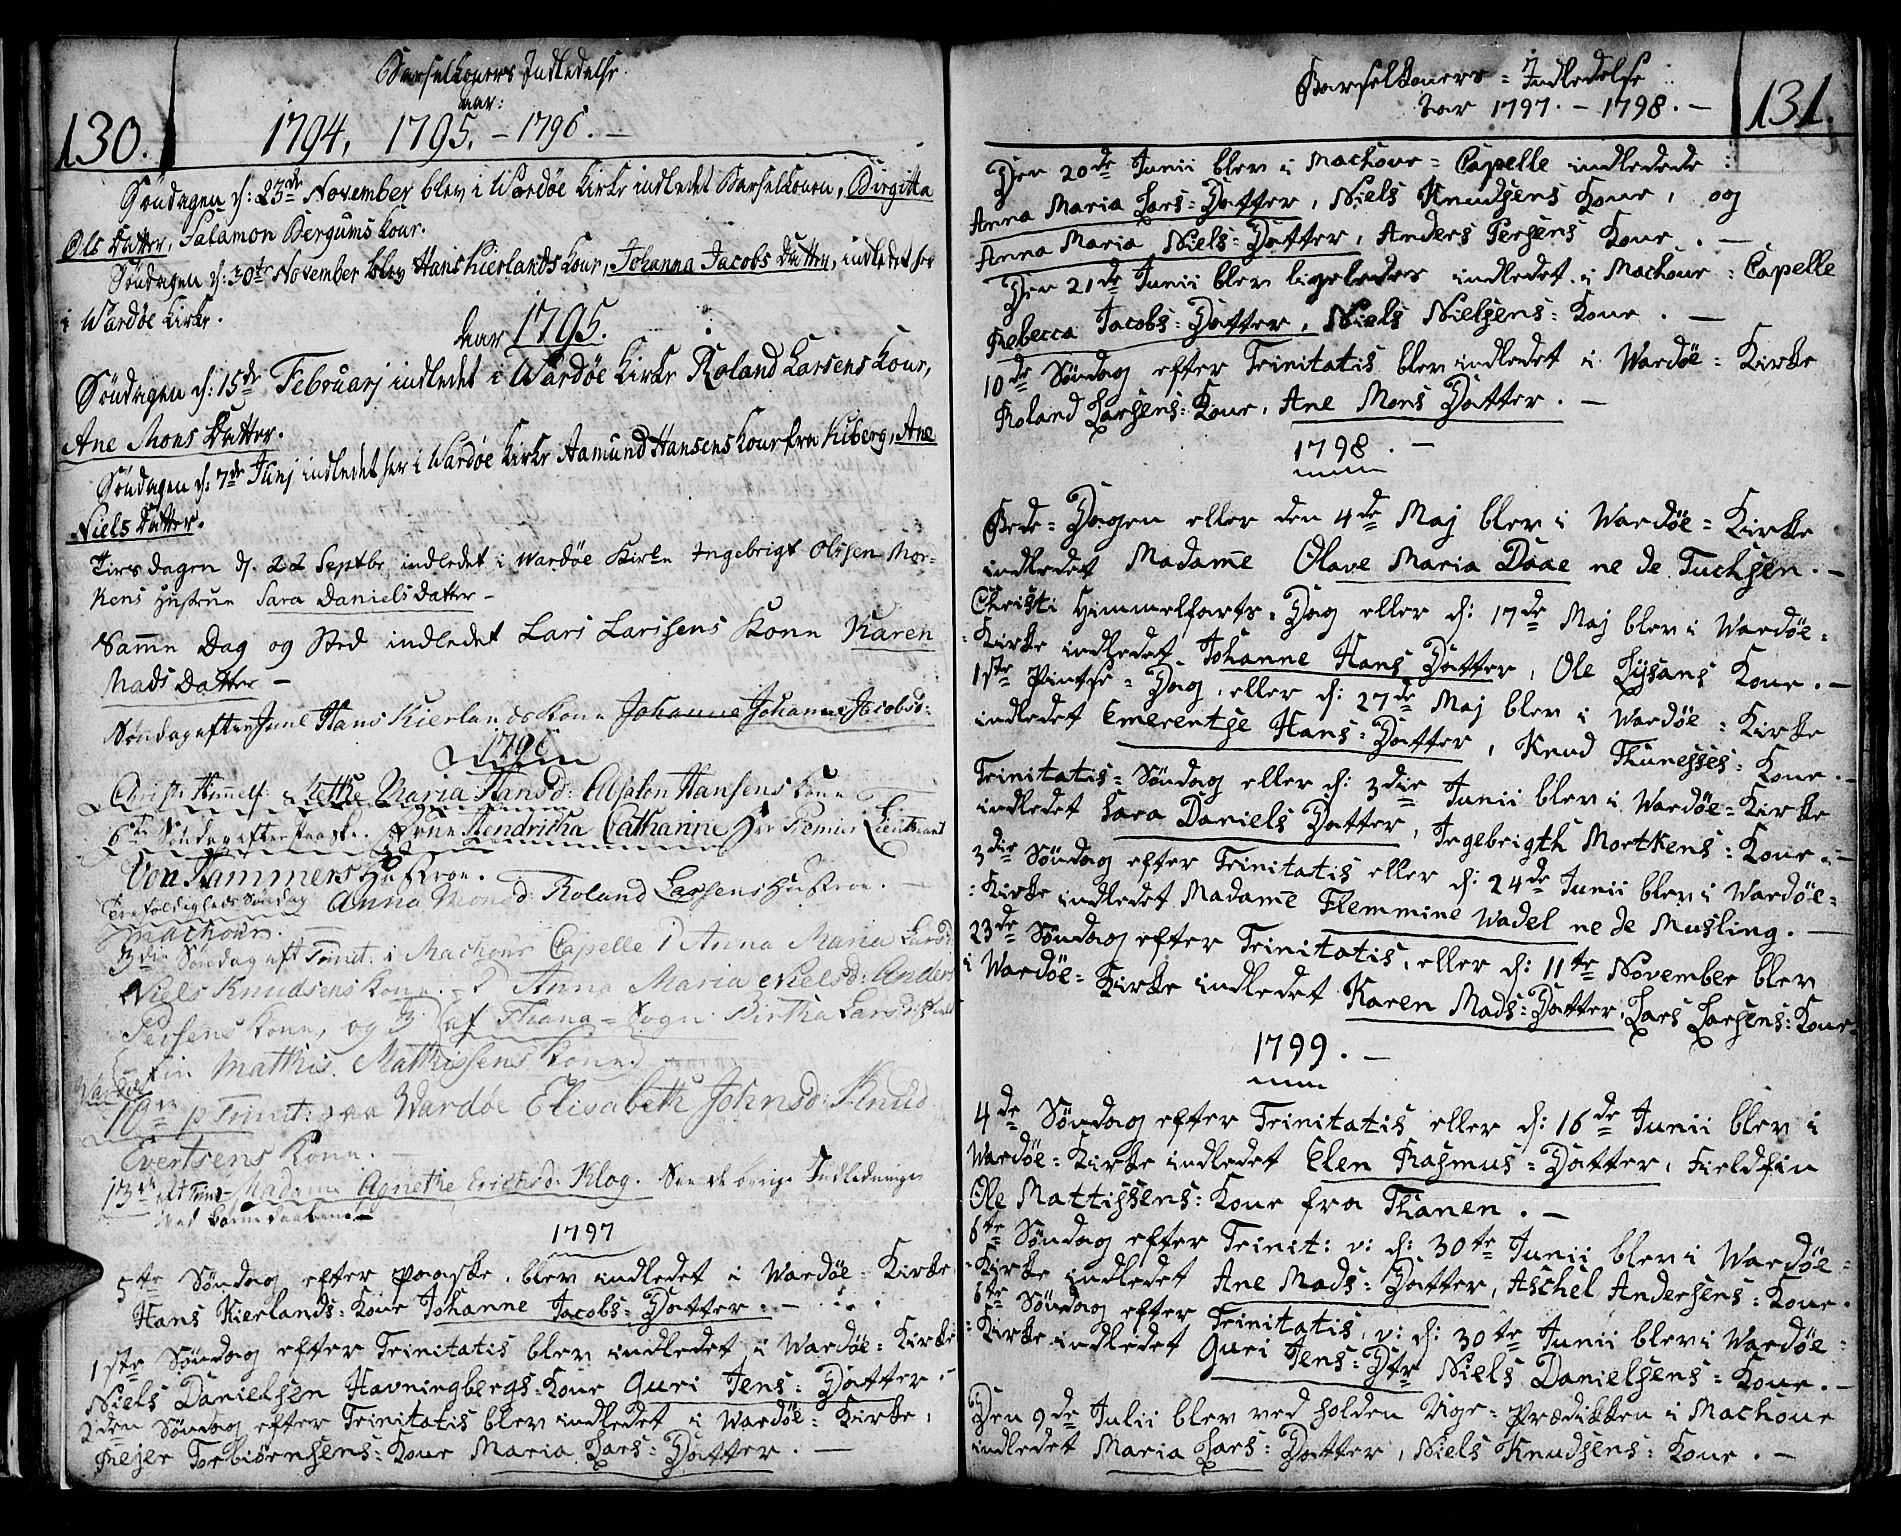 Barselkoners Indledelse
aar:
130. 1794, 1795, - 1796. -
Søndagen d: 23de November blev i Wardøe Kirke indledet Barselkonen, Birgitta
Ols Datter, Salamon Bergums Kone.
Søndagen d: 30te November blev Hans Kierlands Kone, Johanna Jacobs Datter, indledet her
i Wardøe Kirke.
Aar 1795.
Søndagen d: 15de Februarj indledet i Wardøe Kirke Roland Larsens Kone,
Ane Mons Datter.
Søndagen d: 7de Junj indledet her i Wardøe Kirke Aamund Hansens Kone fra Kiberg, Ane
Niels Datter.
Tirsdagen d. 22 Septbr indledet i Wardøe Kirke Ingebrigt Olssen Mor-
kens Hustrue Sara Danielsdatter -
Samme Dag og Sted indledet Lars Larssens Kone Karen
Mads Datter -
Søndag efter Juul Hans Kierlands Kone Johanne Johanne Jacobsd:
1796
Christi Himmelf: Methe Maria Hansd: Absalon Hansens Kone
6te Søndag efter Paaske. Hendricha Catharine Hr Premier Lieutnant
Von Hammers Hustroe.
Trefoldigheds Søndag Anna Monsd: Roland Larsens Hustroe. -
Machour. -
3die Søndag eft Trinit: i Machour Capelle 1 Anna Maria Larsd:
Niels Knudsens Kone. - 2 Anna Maria Nielsd: Anders
Persens Kone, og 3 af Thana = Sogn Birtha Larsd:
Matthis Mathissens Kone
Wardøe
10de p Trinit: paa Wardøe Elisabeth Johnsd: Knud
Evertsens Kone. -
13de eft Trin: Madame Agnethe Erichsd: Klog. See de øvrige Indledninger
ved Børne Daaben. -
1797
5te Søndag efter Paaske, blev indledet i Wardøe = Kirke
Hans Kierlands = Kone Johanne Jacobs = Datter. -
1ste Søndag efter Trinitatis blev indledet i Wardøe = Kirke
Niels Danielsen Havningbergs = Kone Guri Jens = Datter. -
2den Søndag efter Trinitatis blev indledet i Wardøe = Kirke,
Rejer Torbiørnsens = Kone Maria Lars = Datter. -
Barselkoners = Indledelse
Aar 1797. - 1798. - 131.
Den 20de Junii blev i Machour = Capelle indledede :
Anna Maria Lars = Datter, Niels Knudsens Kone, og
Anna Maria Niels = Datter, Anders Persens Kone. -
Den 21de Junii blev ligeledes indledet i Machour = Capelle
Rebecca Jacobs = Datter, Niels Nielsens = Kone. -
10de Søndag efter Trinitatis blev indledet i Wardøe = Kirke
Roland Larsens = Kone, Ane Mons Datter. -
1798. -
Bede = Dagen eller den 4de Maj blev i Wardøe = Kirke
indledet Madame Olave Maria Daae ne de Tuchsen. -
Christi Himmelfarts = Dag eller d: 17de Maj blev i Wardøe =
= Kirke indledet Johanne Hans Datter, Ole Lysans Kone. -
1ste Pintse = Dag, eller d: 27de Maj blev i Wardøe = Kirke
indledet Emerentse Hans = Datter, Knud Thunesses = Kone. -
Trinitatis = Søndag eller d: 3die Junii blev i Wardøe = Kirke
indledet Sara Daniels Datter, Ingebrigth Mortkens = Kone. -
3die Søndag efter Trinitatis eller d: 24de Junii blev i Wardøe =
= Kirke indledet Madame Flemmine Wadel ne de Musling. -
23de Søndag efter Trinitatis, eller d: 11te November blev
i Wardøe = Kirke indledet Karen Mads = Datter, Lars Larsens = Kone -
1799. -
4de Søndag efter Trinitatis eller d: 16de Junii blev i
Wardøe = Kirke indledet Elen Rasmus = Datter, Fieldfin
Ole Mattissens = Kone fra Thanen. -
6te Søndag efter Trinit: v: d: 30te Junii blev i Wardøe =
= Kirke indledet Ane Mads = Datter, Aschel Andersens = Kone.
6te Søndag efter Trinitatis, v: d: 30te Junii blev i Wardøe =
= Kirke indledet Guri Jens = Dtr Niels Danielsens = Kone. -
Den 9de Julii blev ved holden Uge = Prædikken i Machour
indledet Maria Lars = Datter, Niels Knudsens = Kone. -